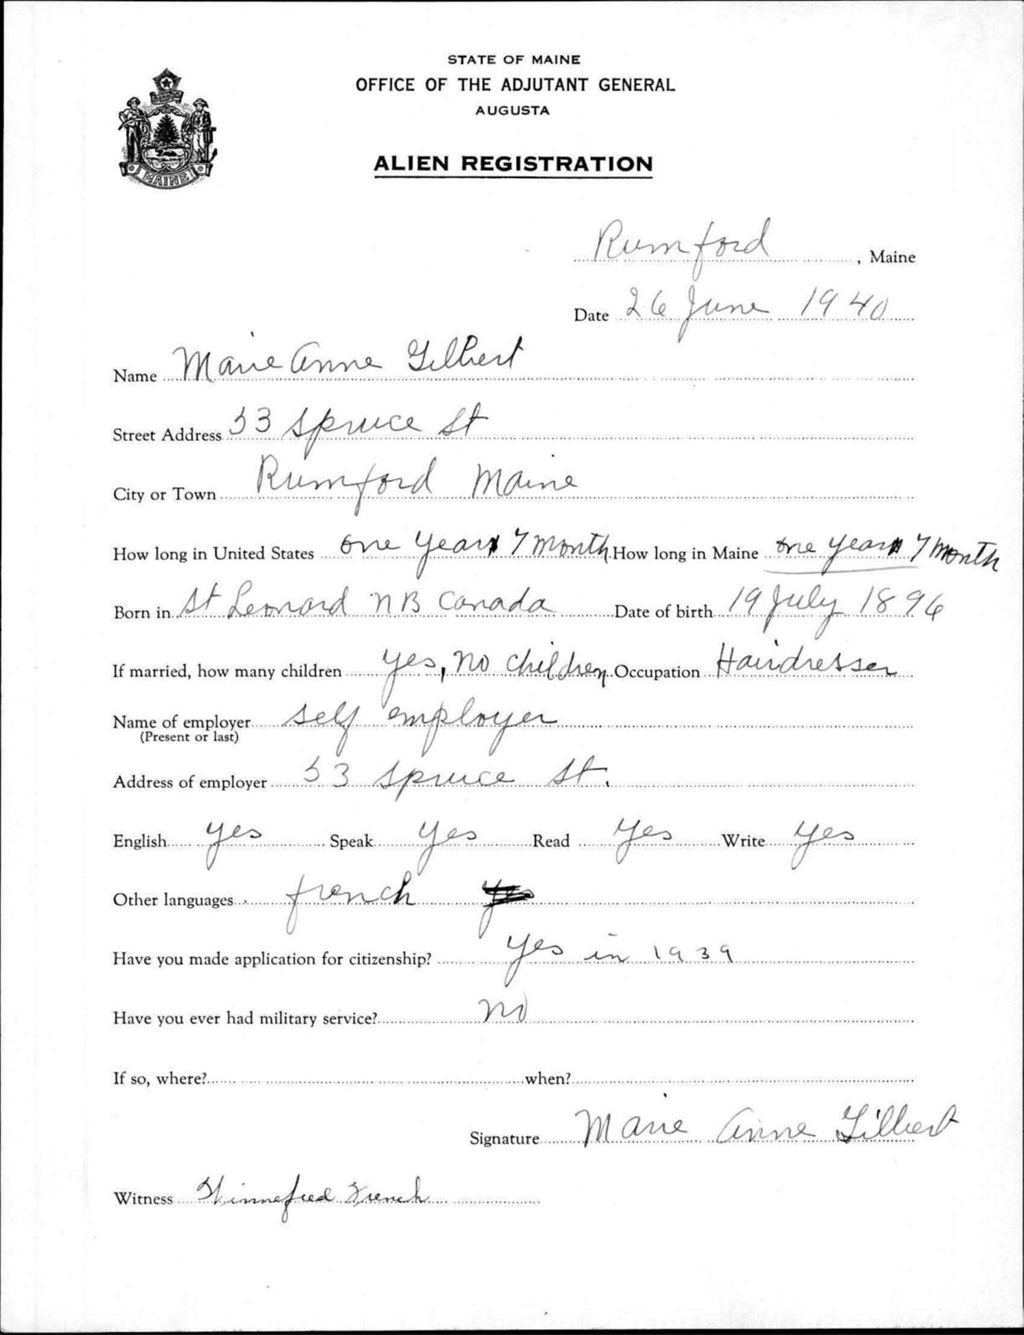 STATE OF MAINE
OFFICE OF THE ADJUTANT GENERAL
AUGUSTA
ALIEN REGISTRATION
MAINE
Rumford, Maine
Date 26 June 1940
Name Marie Anne Gilbert
Street Address 53 Spruce St
City or Town Rumford Maine
How long in United States one year 7 month How long in Maine one year 7 month
Born in St Leonard NB Canada Date of birth 19 July 1896
If married, how many children yes, no children Occupation Hairdresser
Name of employer self employer
(Present or last)
Address of employer 53 Spruce St.
English yes Speak yes Read yes Write yes
Other languages french yes
Have you made application for citizenship? yes in 1939
Have you ever had military service? no
If so, where? when?
Signature Marie Anne Gilbert
Witness Winnefred French